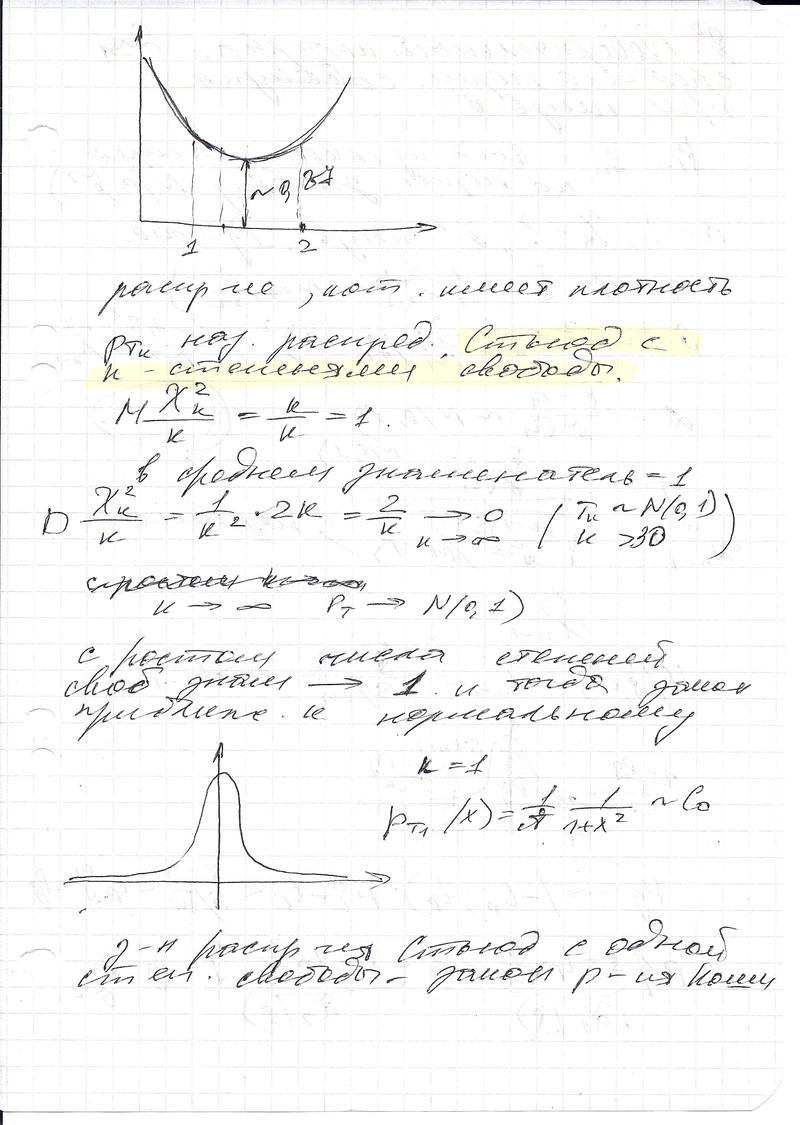 ~0,87
1 2
распр-ие, кот. имеет плотность
p_{T_k} наз. распред. Стьюд с
k - степенями свободы.
M \frac{χ_k^2}{k} = \frac{k}{k} = 1.
в среднем знаменатель = 1
D \frac{χ_k^2}{k} = \frac{1}{k^2} · 2k = \frac{2}{k} \xrightarrow[k→∞]{} 0 (T_k ~ N(0,1) k > 30)
k → ∞ P_T → N(0,1)
с ростом числа степеней
своб знам → 1 и тогда закон
приближ. к нормальному
k = 1
p_{T_1}(x) = \frac{1}{π} \frac{1}{1+x^2} ~ C_0
з-н распр-ия Стьюд с одной
степ. свободы - закон р-ия Коши